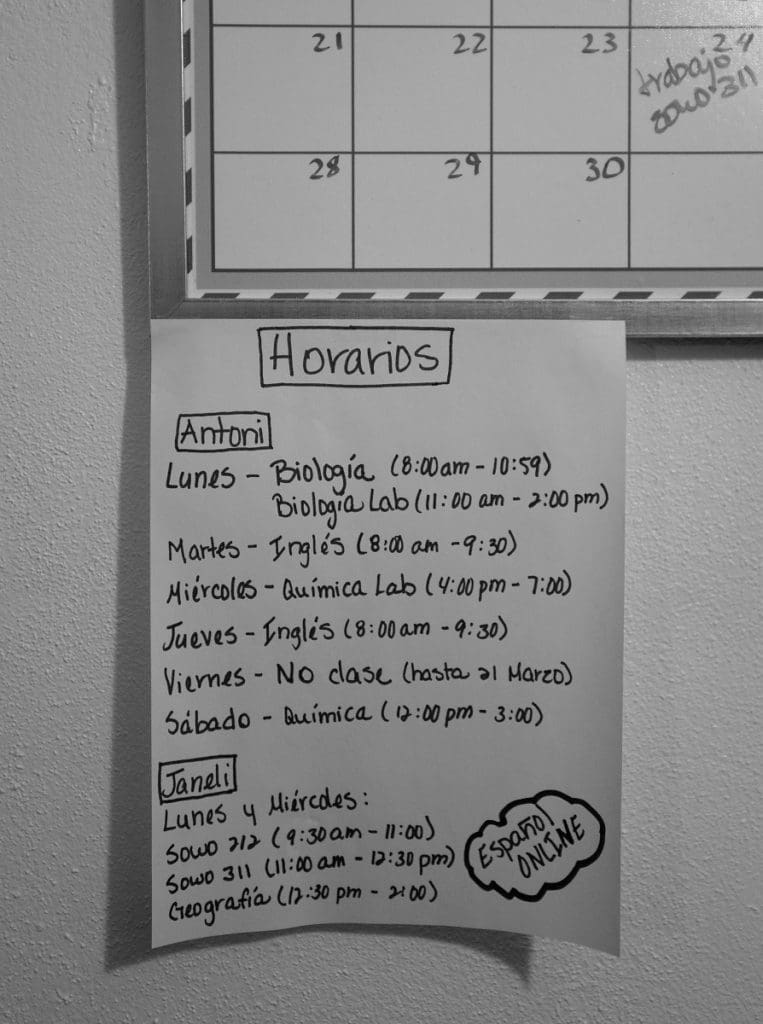 21 22 23 24
trabajo
sowo 311
28 29 30
Horarios
Antoni
Lunes - Biología (8:00am - 10:59)
Biología Lab (11:00 am - 2:00 pm)
Martes - Inglés (8:00 am - 9:30)
Miércoles - Química Lab (4:00 pm - 7:00)
Jueves - Inglés (8:00 am - 9:30)
Viernes - No clase (hasta 21 Marzo)
Sábado - Química (12:00 pm - 3:00)
Janeli
Lunes y Miércoles:
Sowo 212 (9:30 am - 11:00)
Sowo 311 (11:00 am - 12:30 pm)
Geografía (12:30 pm - 2:00)
Español
ONLINE